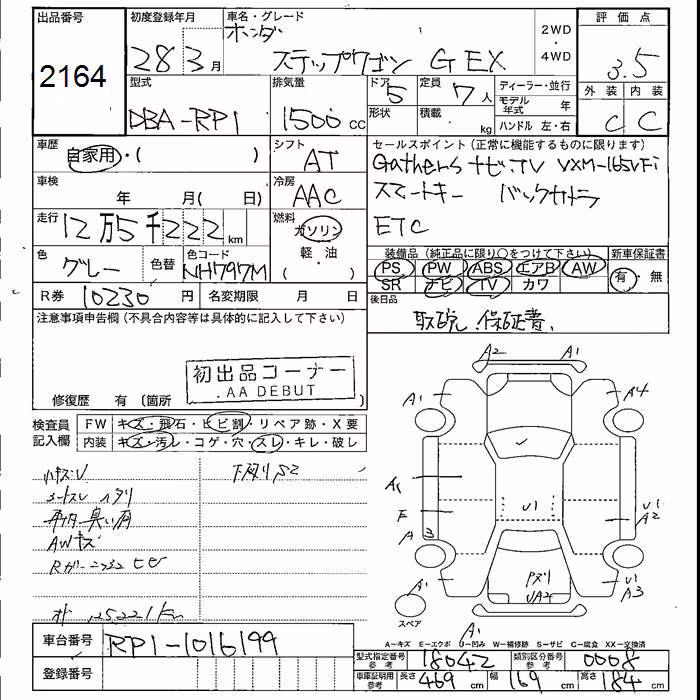 出品番号
2164
初度登録年月
28 3月
車名・グレード
ホンダ
ステップワゴン G EX
2WD
・
4WD
評価点
3.5
外装 内装
C C
型式
DBA-RP1
排気量
1500 cc
ドア
5
形状
定員
7人
積載
kg
ディーラー・並行
モデル年式 年
ハンドル 左・右
車歴
自家用・( )
シフト
AT
セールスポイント(正常に機能するものに限ります)
Gathers ナビ.TV VXM-165VFi
スマートキー バックカメラ
ETC
車検
年 月( 日)
冷房
AAC
走行
12万5千222km
燃料
ガソリン
軽・油
( ・ )
色
グレー
色替
色コード
NH797M
装備品(純正品に限り○をつけて下さい)
PS PW ABS エアB AW
SR ナビ TV カワ
新車保証書
有・無
R券 10230 円
名変期限 月 日
後日品
取説.保証書.
注意事項申告欄(不具合内容等は具体的に記入して下さい)
初出品コーナー
.AA DEBUT
修復歴 有(箇所
検査員記入欄
FW キズ・飛石・ヒビ割・リペア跡・X要
内装 キズ・汚レ・コゲ・穴・スレ・キレ・破レ
下廻りS2
AWキズ
車台番号
RP1-1016199
登録番号
A2 A1
A1 A4
A1
U1
U1
A2
E
A3
A1
U1
A3
A1
スペア
A-キズ E-エクボ U-凹み W-補修跡 S-サビ C-腐食 XX-交換済
型式指定番号参考 18042
類別区分番号参考 0008
車庫証明用参考 長さ 469cm 幅 169cm 高さ 184cm